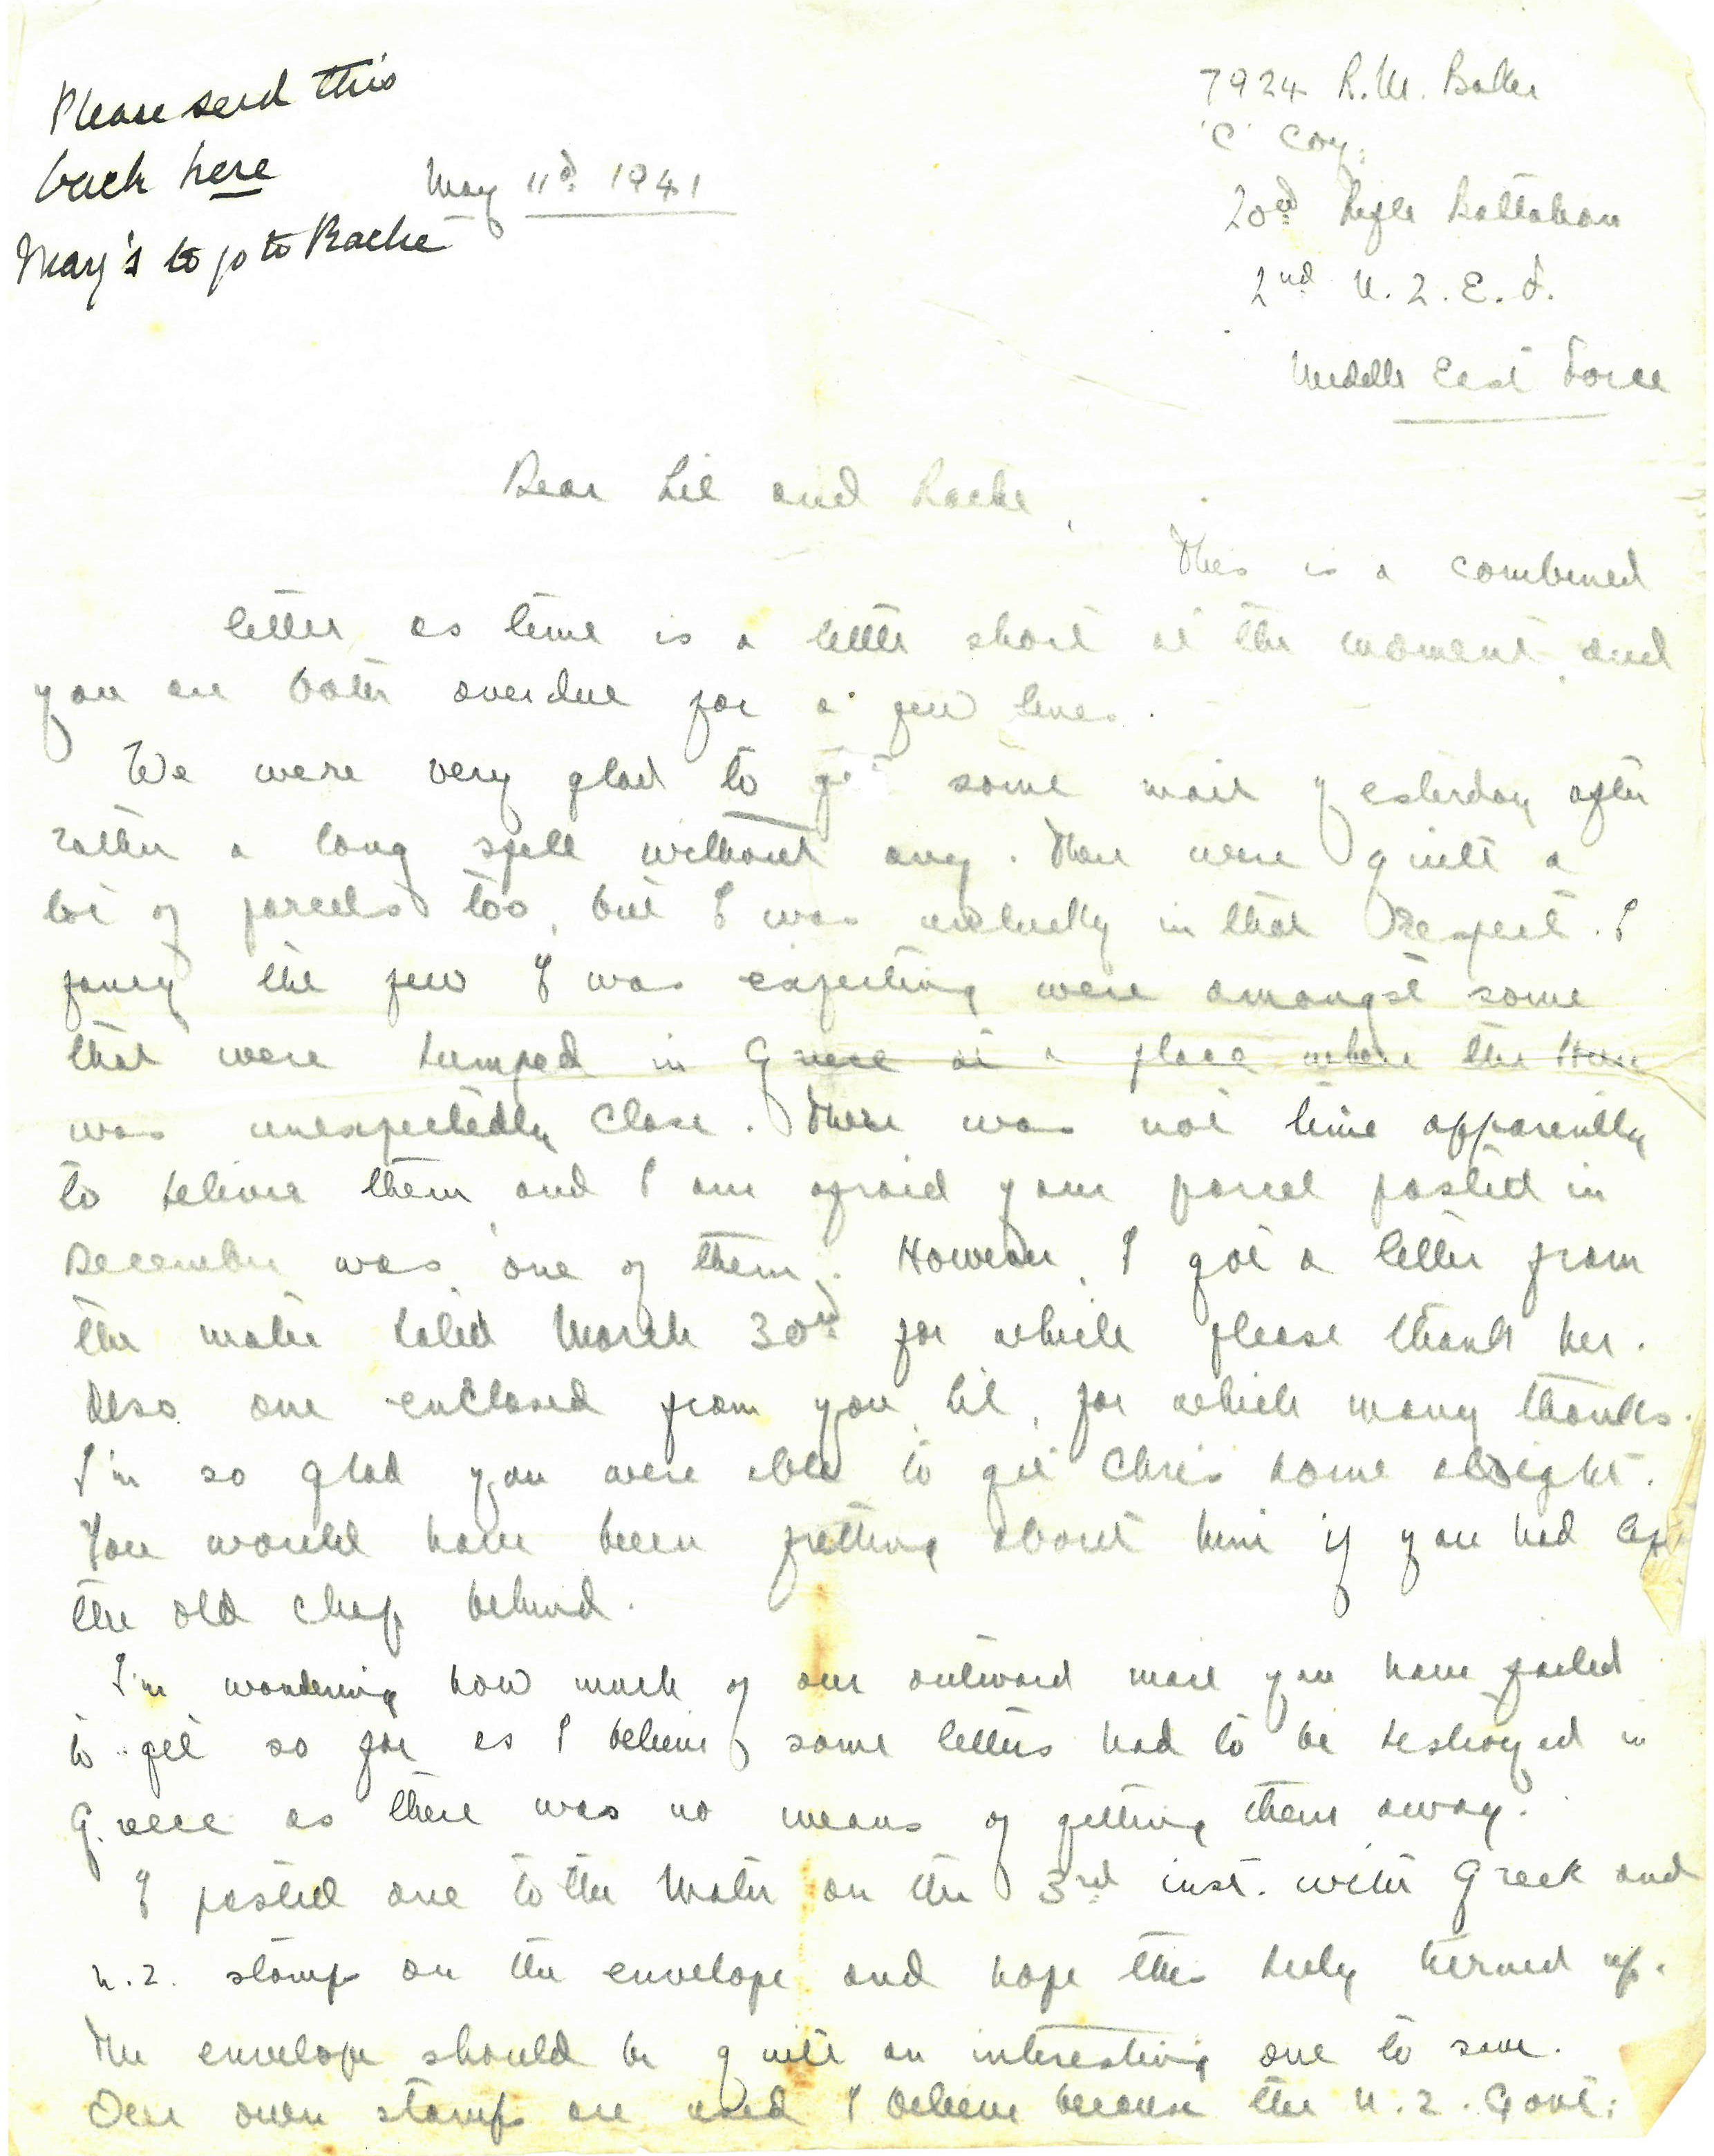 Please send this
back here
Mary's to go to Rache
May 11th 1941
7924 R.M. Baker
'C' Coy.
20th Rifle Battalion
2nd N.Z.E.F.
Middle East Force
Dear Lil and Rache,
This is a combined
letter as time is a little short at the moment and
you are both overdue for a few lines.
We were very glad to get some mail yesterday after
rather a long spell without any. There were quite a
lot of parcels too, but I was unlucky in that respect. I
fancy the few I was expecting were amongst some
that were dumped in Greece at a place where the Hun
was unexpectedly close. There was not time apparently
to deliver them and I am afraid your parcel posted in
December was one of them. However, I got a letter from
the mater dated March 30th for which please thank her.
Also one enclosed from you, Lil, for which many thanks.
I'm so glad you were able to get Chris home alright.
You would have been fretting about him if you had left
the old chap behind.
I'm wondering how much of our outward mail you have failed
to get so far as I believe some letters had to be destroyed in
Greece as there was no means of getting them away.
I posted one to the Mater on the 3rd inst. with Greek and
N.Z. stamps on the envelope and hope this duly turned up.
The envelope should be quite an interesting one to save.
Our own stamps are used I believe because the N.Z. Govt.